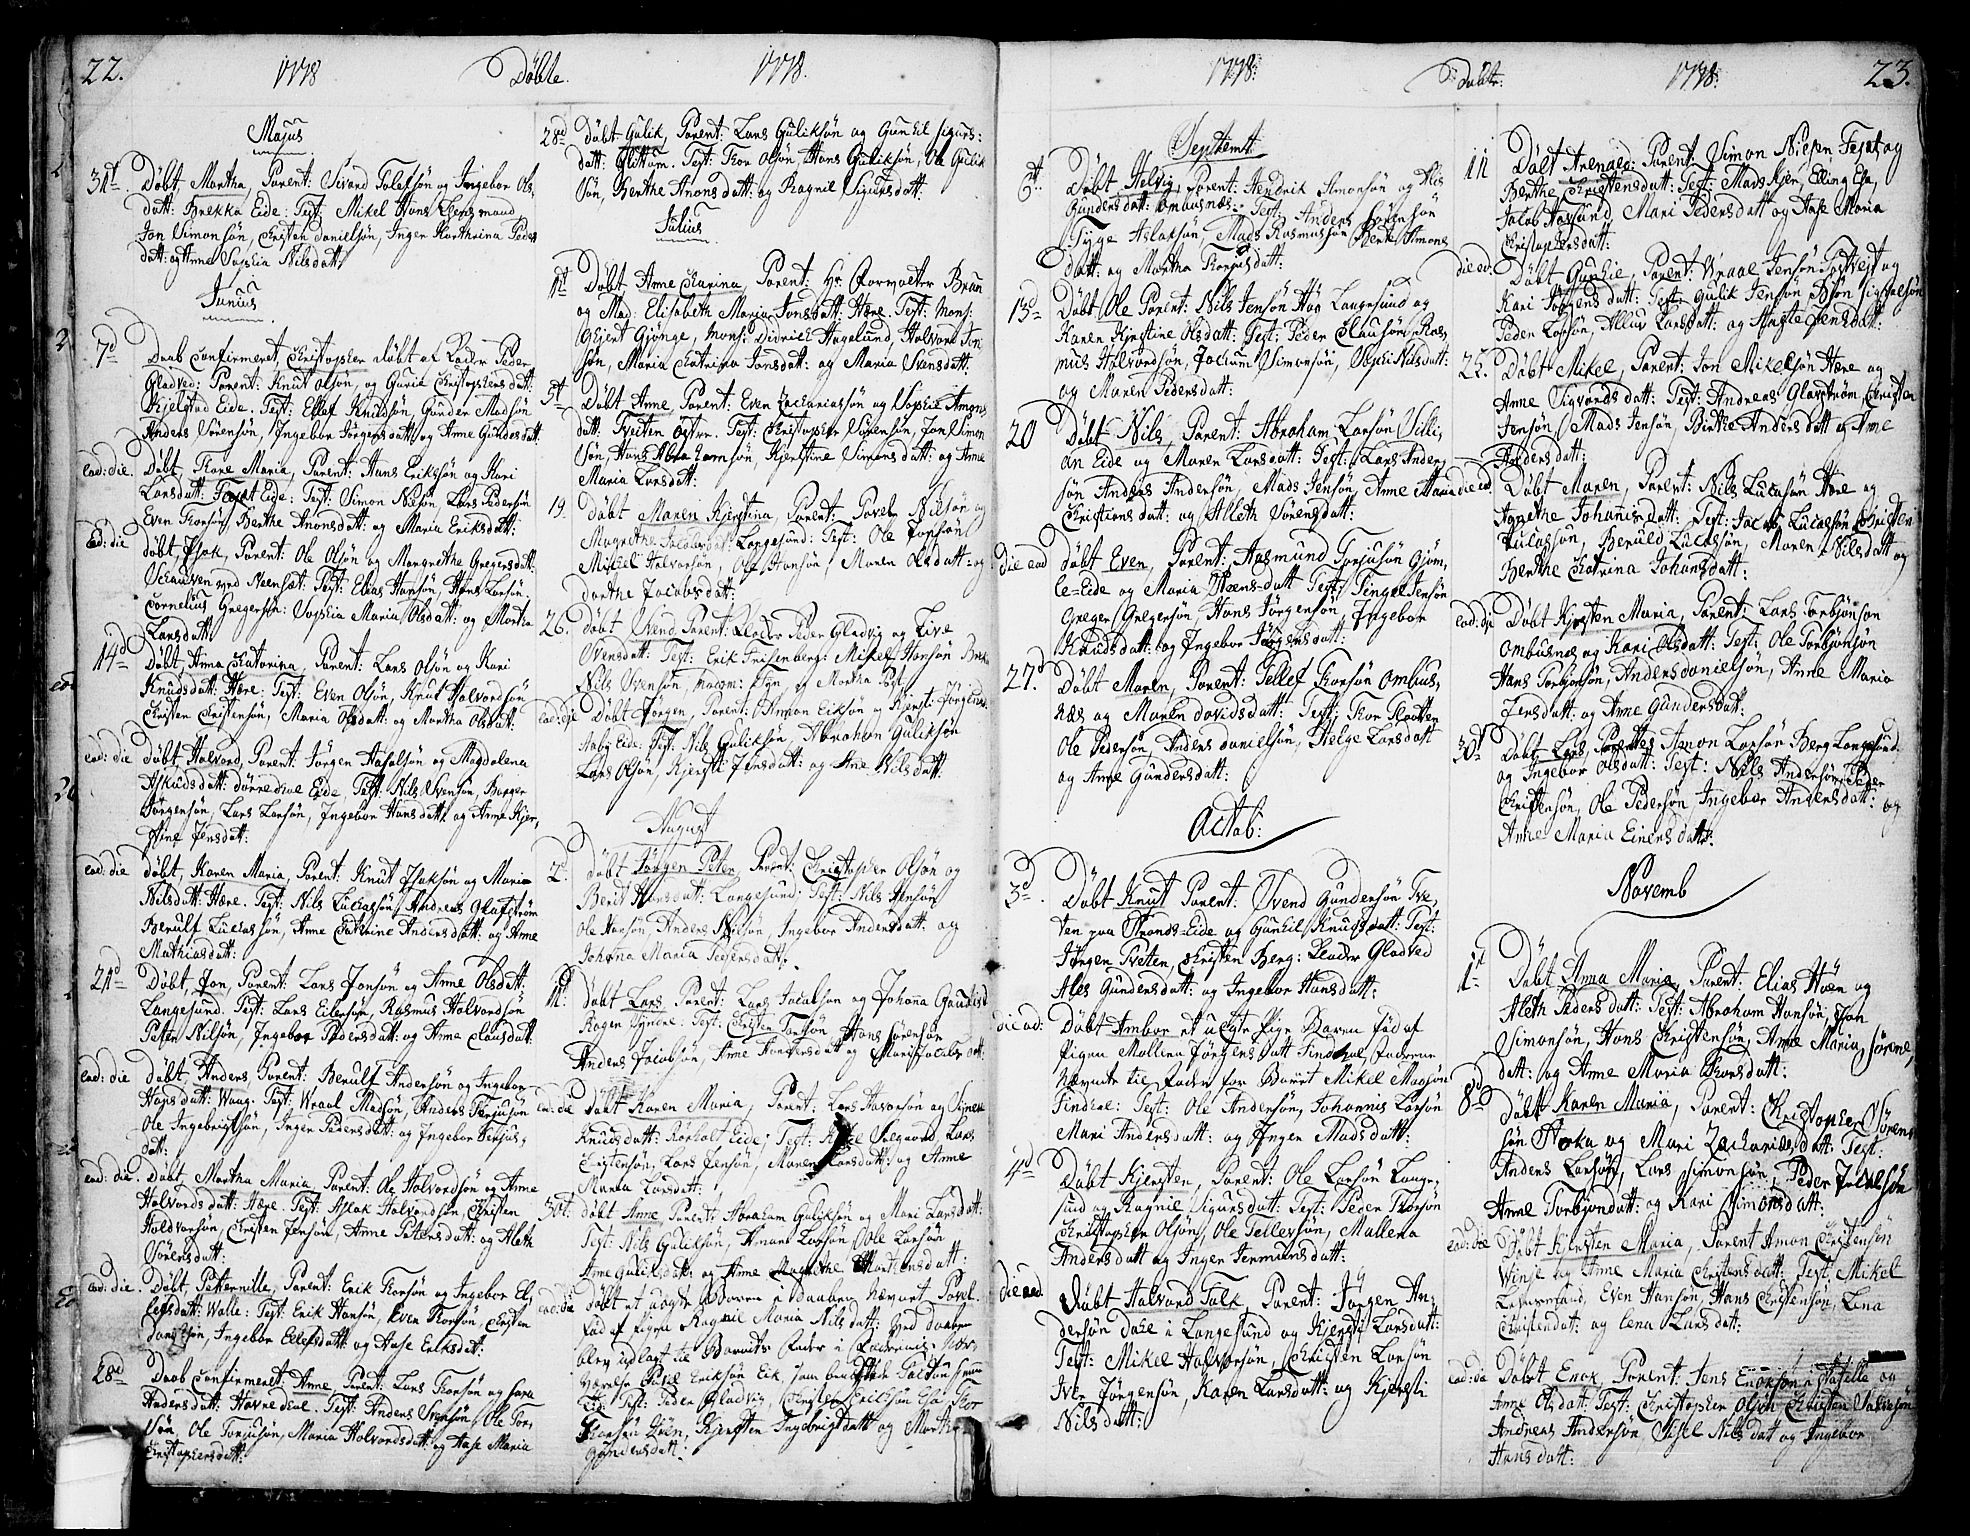 22. 1778 Döbte. 1778.
Majus
31t. Döbt, Martha, Parent: Sivord Tolefsön og Ingebor Ols
datt: Brekka Eide: Test: Mikel Hans Lensmand
Jon Simonsön, Christen Danielsön, Inger Karthrina Peder
datt: og Anne Sophia Nilsdatt:
Junius
7d Daab Confirmeret, Christopher döbt af Leader Peder
Gladved: Parent: Knut Olsön, og Guria Christophersdatt:
Kjelstad Eide. Test: Ellef Knudsön, Gunder Madsön
Anders Sörensön, Ingebor Jörgensdatt: og Anne Gundersdatt:
ead: die. Döbt, Thore Maria, Parent: Hans Eriksön og Kari
Larsdatt: Eide: Test: Simon Nilsön, Lars Pedersön
Even Thorsön, Berthe Anonsdatt: og Maria Eriksdatt:
ead: die döbt, Isak, Parent: Ole Olsön og Margrethe Gregersdatt:
ved Neensæt: Test: Elias Hansön, Hans Larsön
Cornelius Gregersön: Sophia Maria Olsdatt: og Martha
Larsdatt:
14d Döbt, Anna Catarina, Parent: Lars Olsön og Kari
Knudsdatt: Hære: Test: Even Olsön, Knut Halvordsön
Christen Christensön, Maria Olsdatt: og Martha Olsdatt:
ead: die döbt, Halvord, Parent: Jörgen Aslalsön og Magdalena
Askudsdatt: Eide, Test: Nils Svensön, Börger
Jörgensön, Lars Larsön, Ingebor Hansdatt: og Anne Kjer,
stine Jensdatt:
ead: die döbt, Karen Maria, Parent: Knut Isaksön og Maria
Nilsdatt: Hære. Test: Nils Lucassön, Andreas Glafström
Berulf Lucassön, Anne Cathrine Andersdatt: og Anne
Mathiasdatt:
21d Döbt, Jon, Parent: Lars Jonsön og Anne Olsdatt:
Langesund. Test: Lars Eilersön, Rasmus Halvordsön
Peter Nilsön, Ingebor Pedersdatt: og Anne Clausdatt:
ead: die döbt, Anders, Parent: Berulf Andersön og Ingebor
Hansdatt: Waag: Test: Wraal Madsön, Anders Terjusön
Ole Ingebrigtsön, Inger Pedersdatt: og Ingebor Terjus,
datt:
ead: die. Döbt, Martha Maria, Parent: Ole Halvordsön og Anne
Halvordsdatt: Hære. Test: Aslak Halvordsön, Christen
Haldvorsön, Christen Jensön, Anne Petersdatt: og Aleth
Sörensdatt:
ead: die. Döbt, Petternille, Parent: Erik Thorsön og Ingebor El,
lefsdatt: Walle: Test: Erik Hansön, Even Thorsön, Christen
Danielsön, Ingebor Ellefsdatt: og Aase Eriksdatt:
28d Daab Confirmeret, Anne, Parent: Lars Thorsön og Sara
Andersdatt: Havredahl. Test: Anders Svensön, Ole Tor,
sön, Ole Torjusön, Maria Halvordsdatt: og Aase Maria
Christophersdatt:
28d Döbt, Gulik, Parent: Lars Guliksön og Gunhil Sigurs:
datt: Test: Thor Olsön, Hans Guliksön, Ole Gulik
Sön, Berthe Anonsdatt: og Ragnil Sigursdatt:
Julius
1t Döbt, Anne Catrina, Parent: Hr Forvalter Brun
og Mad: Elisabeth Maria Jonsdatt: Hære. Test: Mons:
Gjert Gjönge, Mons: Didrich Hagelund, Halvord Jon
Sön, Maria Catrina Jonsdatt: og Maria Svensdatt:
5t Döbt, Anne, Parent: Even Zachariassön og Sophie Amons
datt: Tveiten Test: Christopher Sörensön, Jon Simon
Sön, Hans Abrahamsön, Kjerstine Simonsdatt: og Anne
Maria Larsdatt:
19. Döbt, Maren Kjerstina, Parent: Povel Nilsön og
Magrethe Jacobsdatt: Langesund: Test: Ole Jonsön
Mikkel Halvorsön, Ole Hansön, Maren Olsdatt: og
Dorthe Jacobsdatt:
26. Döbt, Svend, Parent: Leader Peder Gladvig og Live
Svensdatt: Test: Erik Frisenberg: Mikel Hansön
Nils Svensön, Madam: og Martha
ead: die Döbt, Jörgen, Parent: Amon Eriksön og Kjerst: Jörgens
Aaby Eide: Test: Nils Guliksön, Abraham Guliksön
Lars Olsön, Kjersti Jensdatt: og Ane Nilsdatt:
August
2. döbt Jörgen Peter, Parent: Christopher Olsön og
Berit Hansdatt: Langesund: Test: Nils Hansön
Ole Hansön, Anders Nilsön, Ingebor Andersdatt: og
Johana Maria Pedersdatt:
11t: döbt Lars, Parent: Lars Jacobsön og Johana
Test: Christen Larsön, Hans Sörensön
Anders Jacobsön, Anne Andersdatt: og Mari Jacobsdatt:
ead: die döbt Karen Maria, Parent: Lars Havorsön og
Knudsdatt: Rörholt Eide: Test: Lars
Christensön, Lars Jensön, Maren Larsdatt: og Anne
Maria Larsdatt:
30t. döbt, Anne, Parent: Abraham Guliksön og Mari Larsdatt:
Test: Nils Guliksön, Amon Larsön, Ole Larsön
Anne Guliksdatt: og Anne Magrethe Mortensdatt:
ead: die döbt et uægte Baren i Daaben nævnt Povel
Föd af Pigen Ragnil Maria Nilsdatt: ved daaben
blev udlagt til Barnets Fader i Faderens
nærelse Eriksön Eik, Som
Test: Peder Gladvig, Christen Eriksön
Kjersten Ingebrigtsdatt: og Martha
Gundersdatt:
1778: Döbte: 1778: 23.
Septemt
6t. Döbt Helvig, Parent: Hendrik Amonsön og
Gundersdatt: Ombusnæs: Test: Anders Sörensön
Tyge Aslaksön, Mads Rasmussön, Berte Amons
datt: og Martha Torjusdatt:
13d Döbt Ole Parent: Nils Jensön Höy Langesund og
Karen Kjerstine Olsdatt: Test: Peder Clausön, Ras,
mus Halvordsön, Jockum Simonsön, Sophi Nilsdatt:
og Maren Pedersdatt:
20 Döbt Nils, Parent: Abraham Larsön Silli,
an Eide og Maren Larsdatt: Test: Lars Ander,
sön Anders Andersön, Mads Jensön, Anne Maria
Christiensdatt: og Alleth Sörensdatt:
die ead döbt Even, Parent: Aasmund Torjusön Gjöm,
le=Eide og Maria Evens=datt Test: Tingel Jensön
Greger Gregersön, Hans Jörgensön, Ingebor
Knudsdatt: og Ingebor Jörgensdatt:
27d Döbt Maren, Parent: Tellef Thorsön Ombus,
næs og Maren Davidsdatt: Test: Thor Flaatten
Ole Pedersön, Anders Danielsön, Helge Larsdatt
og Anne Gundersdatt:
Octob:
3d. Döbt Knut Parent: Svend Gundersön Tve,
ten paa Stronds=Eide og Gunhil Knudsdatt: Test:
Jörgen Tveten, Christen Berg: Leader Gladved
Ales Gundersdatt: og Ingebor Hansdatt:
die ead: Döbt Ambor et uægte Pige Baren föd af
Pigen Mallena Jörgensdatt Findhal, Faderen
nævnte til Fader for Barnet Mikel Madsön
Findhal: Test: Ole Andersön, Johannis Larsön
Mari Andersdatt: og Inger Madsdatt:
4d Döbt Kjersten, Parent: Ole Larsön Lange,
sund og Ragnil Sigursdatt: Test: Peder Thorsön
Christopher Olsön, Ole Tellefsön, Mallena
Andersdatt: og Inger Jermunsdatt:
die ead. Döbt Halvord Falk, Parent: Jörgen An,
dersön Dahl i Langesund og Kjersti Larsdatt:
Test: Mikel Halvorsön, Christen Larsön
Iver Jörgensön, Karen Larsdatt: og Kjersti
Nilsdatt:
11 Döbt Arenald: Parent: Simon Nilsen og
Berthe Christensdatt: Test: Mads Kjer, Elling
Jacob Aasund, Mari Pedersdatt og Aase Maria
Christophersdatt:
die ed: Döbt Gunhie, Parent: Wraal Jensön Tostvejt og
Kari Jörgensdatt: Test: Gulik Jensön,
Peder Larsön, Allur Larsdatt: og Jensdatt:
25. Döbt Mikel, Parent: Jon Mikelsön Hære og
Anne Sigvordsdatt: Test: Andreas Glavström, Christen
Jensön, Mads Jensön, Birthe Andersdatt og Ane
Andersdatt:
die ed. Döbt Maren, Parent: Nils Lucasön Hære og
Agnethe Johanisdatt: Test: Jacob Lucasön, Christen
Lucasson, Beruld Lucassön, Maren Nilsdatt og
Berthe Catrina Johansdatt:
ead: die Döbt Kjersten Maria, Parent: Lars Torbjönsön
Ombusnæs og Kari Olsdatt: Test: Ole Torbjönsön
Hans Torbjönsön, Anders Danielsön, Anne Maria
Jensdatt: og Anne Gundersdatt:
30t Döbt Lars, Parent Amon Larsön Berg Langesund:
og Ingebor Olsdatt: Test: Nils Andersön, Peder
Christensön, Ole Pedersön, Ingebor Andersdatt: og
Anne Maria Einersdatt:
Novemb
1t Döbt Anna Maria, Parent: Elias Höen og
Aleth Pedersdatt: Test: Abraham Hansön, Jon
Simonsön, Hans Christensön, Anne Maria Sörens,
datt: og Anne Maria Thorsdatt:
8d Döbt Karen Maria, Parent: Christopher Sören
sön Aaka og Mari Zachariasdatt: Test:
Anders Larsön, Lars Simonsön, Peder
Anne Torbjöndatt: og Kari Simonsdatt:
ead: die Döbt Kjersten Maria, Parent Amon Christensön
Winje og Anne Maria Christensdatt: Test: Mikel
Even Hansön, Hans Christensön, Lena
Christendatt: og Lena Larsdatt:
ead: die Döbt Enok, Parent: Jens Enoksön og
Anne Olsdatt: Test: Christopher Olsön Christen
Andreas Andersön, Sisel Nilsdatt og Ingebor
Hansdatt: